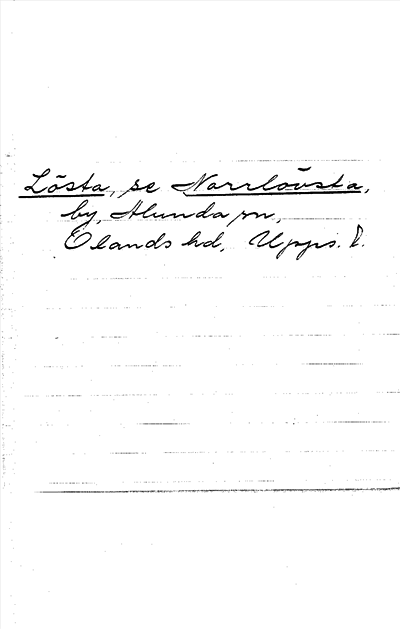 Lösta, se Norrlövsta,
by, Alunda sn,
Olands hd, Upps. l.